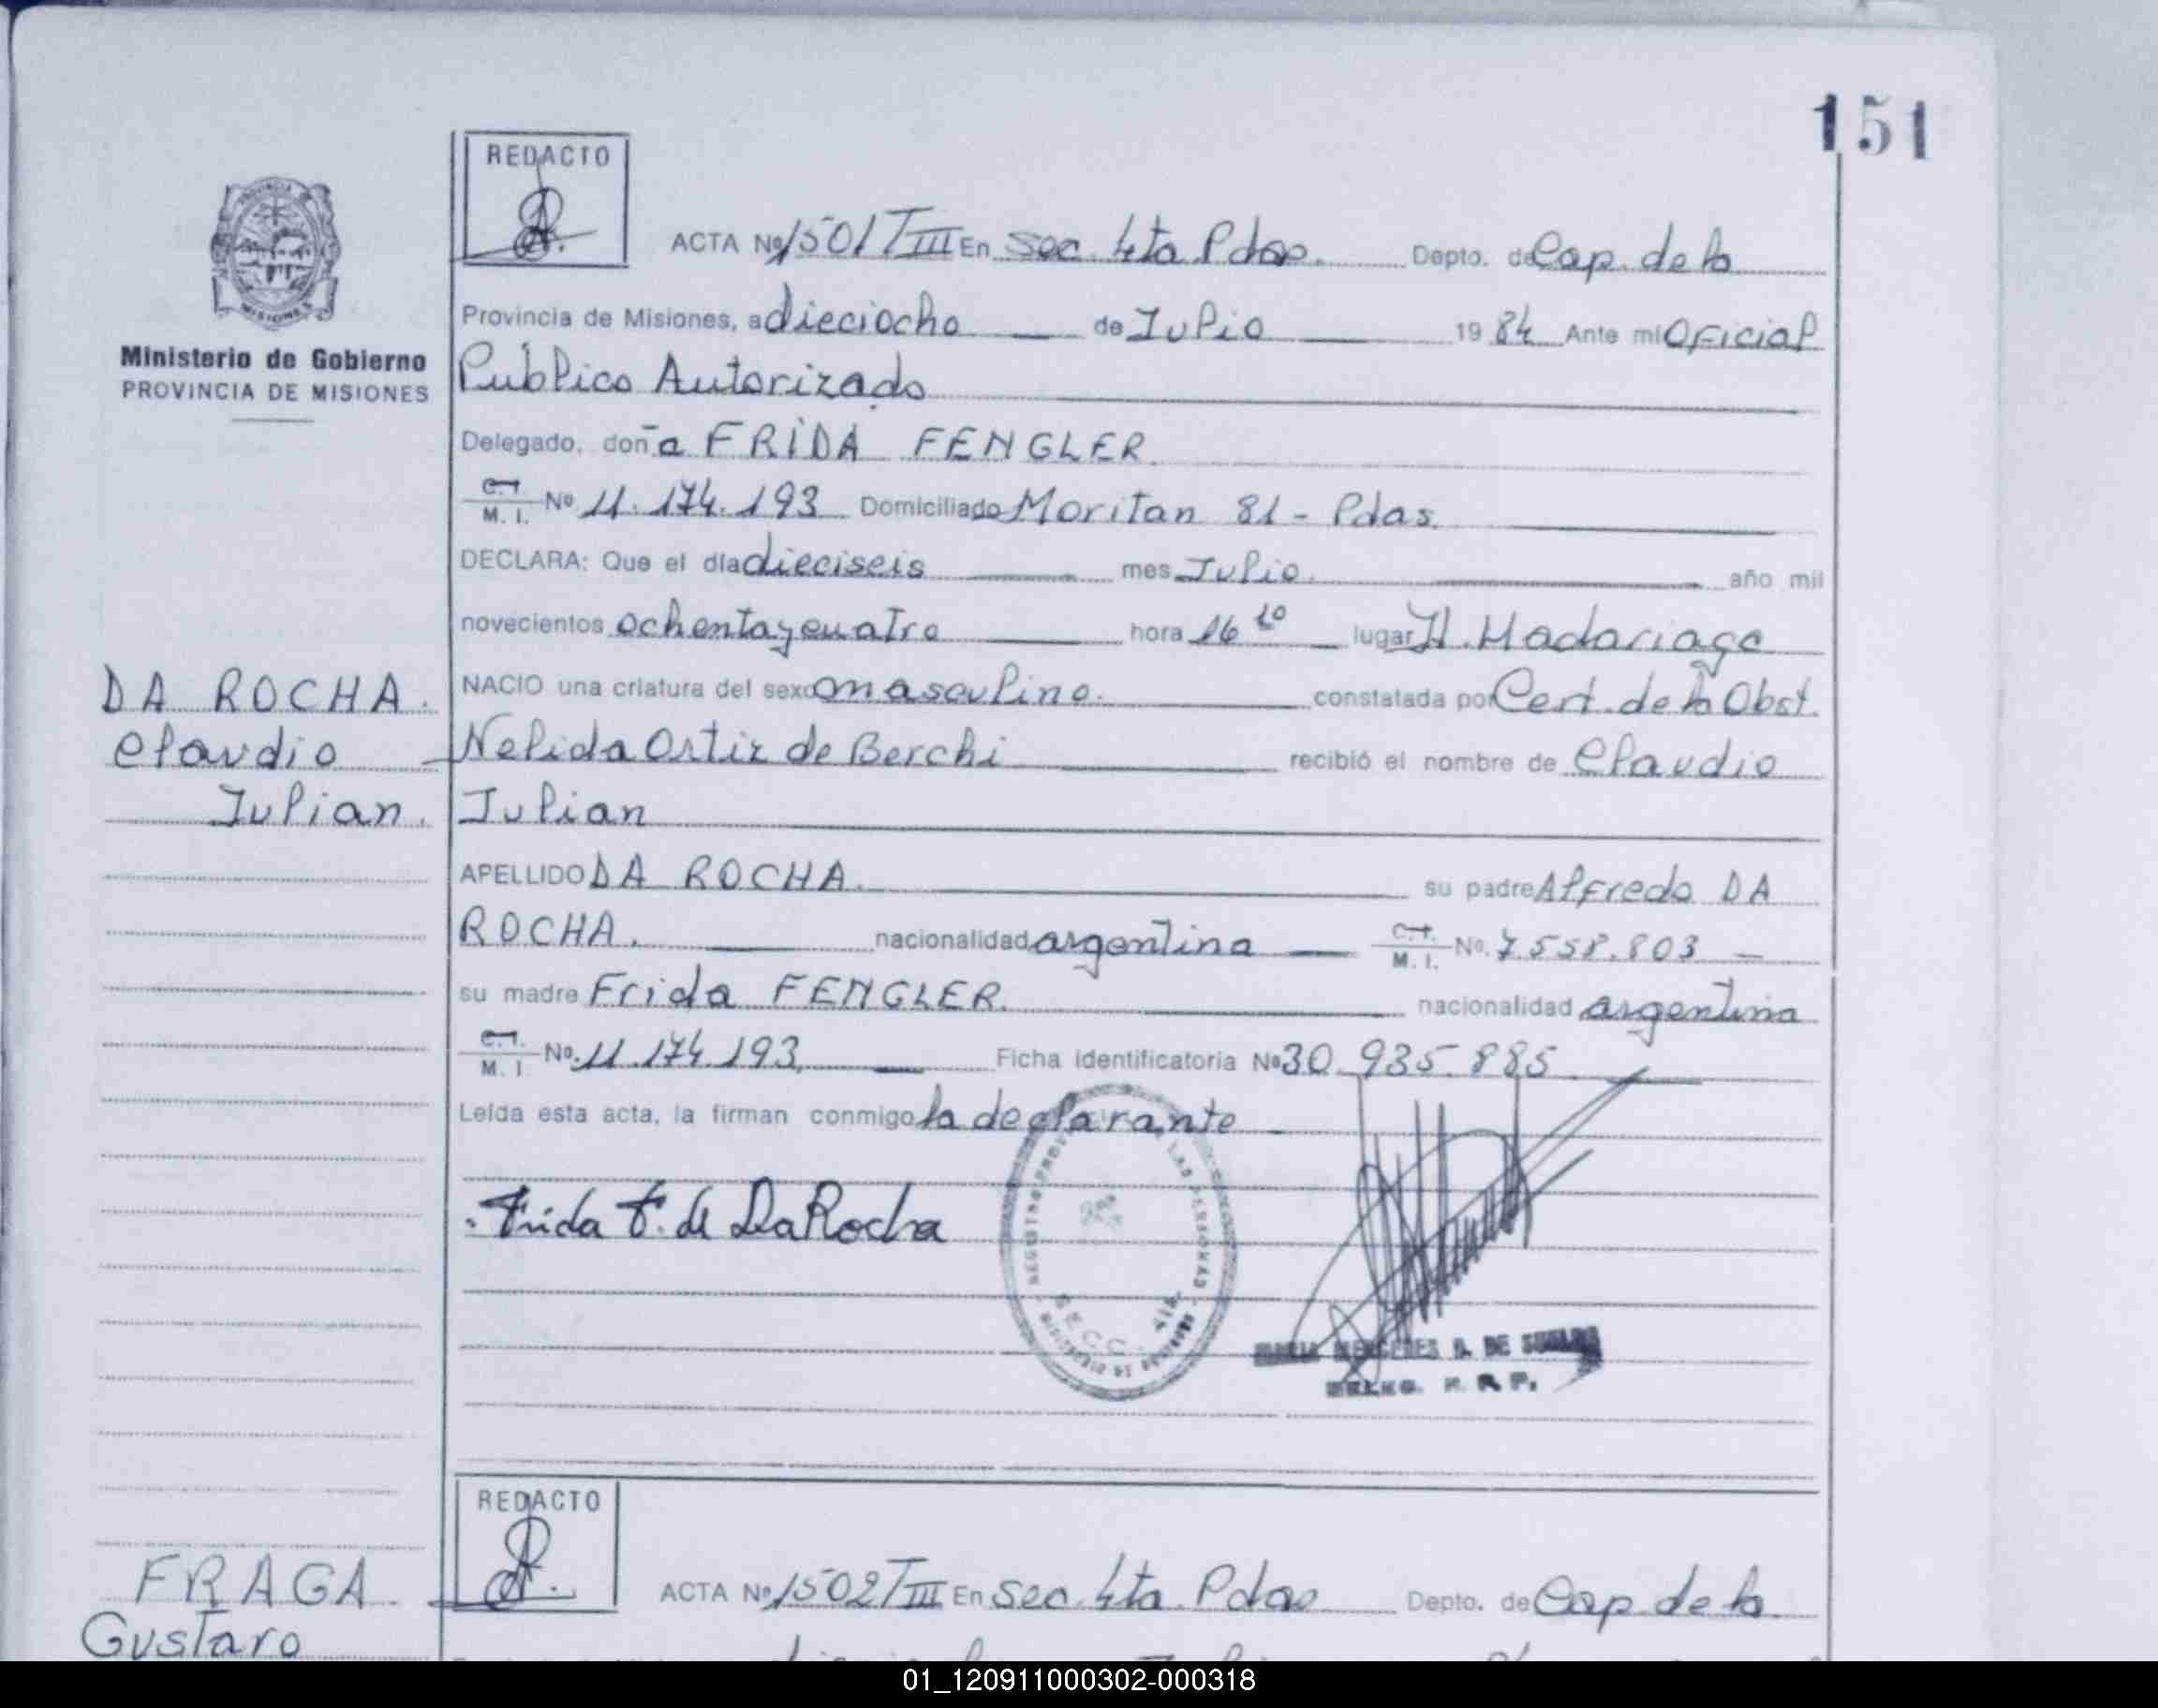 151
REDACTO
ACTA Nº 1501 T III En Sec. 4ta Pdas. Depto. de Cap. de la
Provincia de Misiones, a dieciocho de Julio 1984 Ante mi Oficial
Público Autorizado
Delegado, doña FRIDA FENGLER
C.I. M. I. Nº 11.174.193 Domiciliado Moritan 81 - Pdas.
DECLARA: Que el día dieciseis mes Julio. año mil
novecientos ochenta y cuatro hora 16 10 lugar H. Madariaga
NACIO una criatura del sexo masculino. constatada por Cert. de la Obst.
Nelida Ortiz de Berchi recibió el nombre de Claudio
Julian
APELLIDO DA ROCHA. su padre Alfredo DA
ROCHA. nacionalidad argentina C.I. M. I. Nº. 7.558.803
su madre Frida FENGLER. nacionalidad argentina
C.I. M. I. Nº. 11.174.193 Ficha identificatoria Nº 30.935.885
Leída esta acta, la firman conmigo la declarante
Frida F. de DaRocha
MERCEDES DE
Ministerio de Gobierno
PROVINCIA DE MISIONES
DA ROCHA.
Claudio
Julian.
REDACTO
ACTA Nº 1502 T III En Sec. 4ta. Pdas Depto. de Cap. de la
FRAGA.
Gustavo
01_120911000302-000318